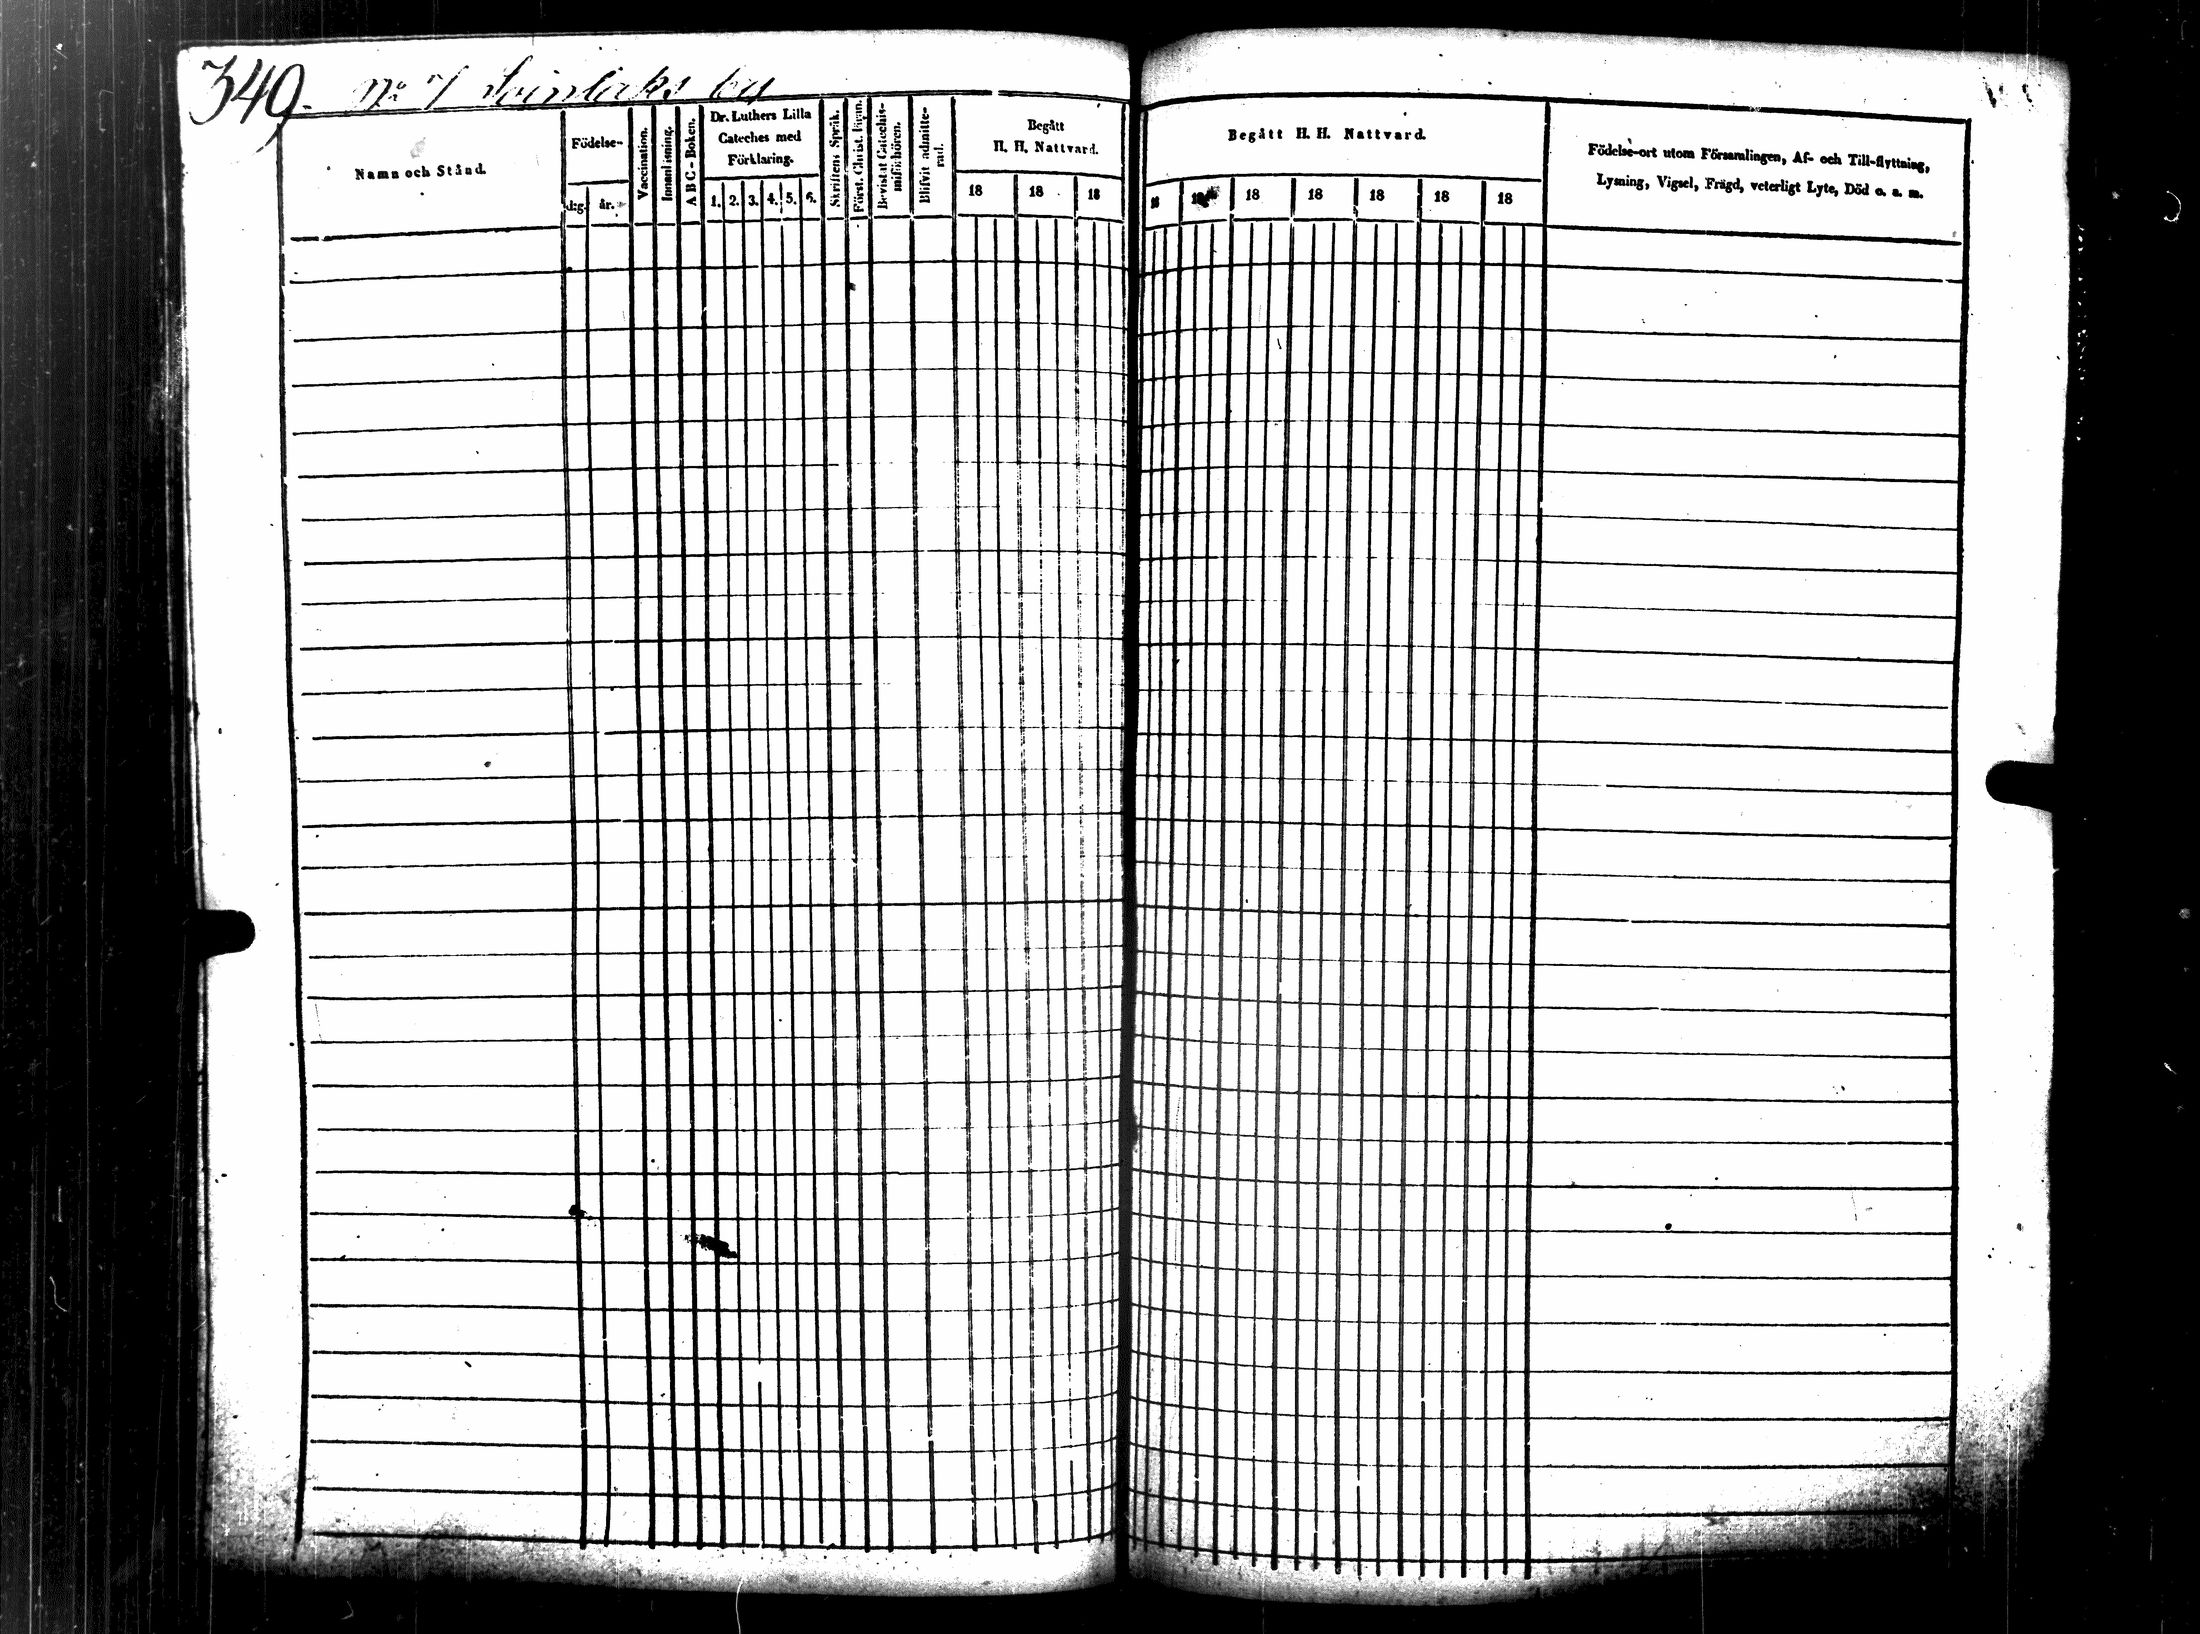 349. No 7 Soinlaks by
Namn och Stånd.
Födelse-
dag. år.
Vaccination.
Innanläsning.
A B C - Boken.
Dr. Luthers Lilla
Cateches med
Förklaring.
1. 2. 3. 4. 5. 6.
Skriftens Språk.
Först. Christ. läran.
Bevistat Catechismiförhören.
Blifvit admitterad.
Begått
H. H. Nattvard.
18 18 18
Begått H. H. Nattvard.
18 18 18 18 18 18 18
Födelse-ort utom Församlingen, Af- och Till-flyttning,
Lysning, Vigsel, Frägd, veterligt Lyte, Död o. a. m.